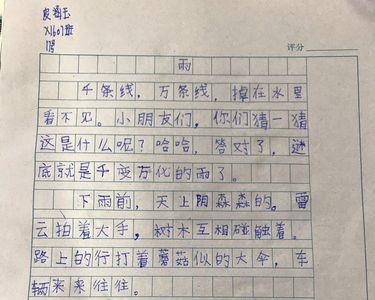 皮海玉
X1607班
17号
评分
雨
千条线，万条线，掉在水里
看不见。小朋友们，你们猜一猜
这是什么呢？哈哈，答对了，谜
底就是千变万化的雨了。
下雨前，天上阴森森的。雷
云拍着大手，树木互相碰触着。
路上的行打着蘑菇似的大伞，车
辆来来往往。